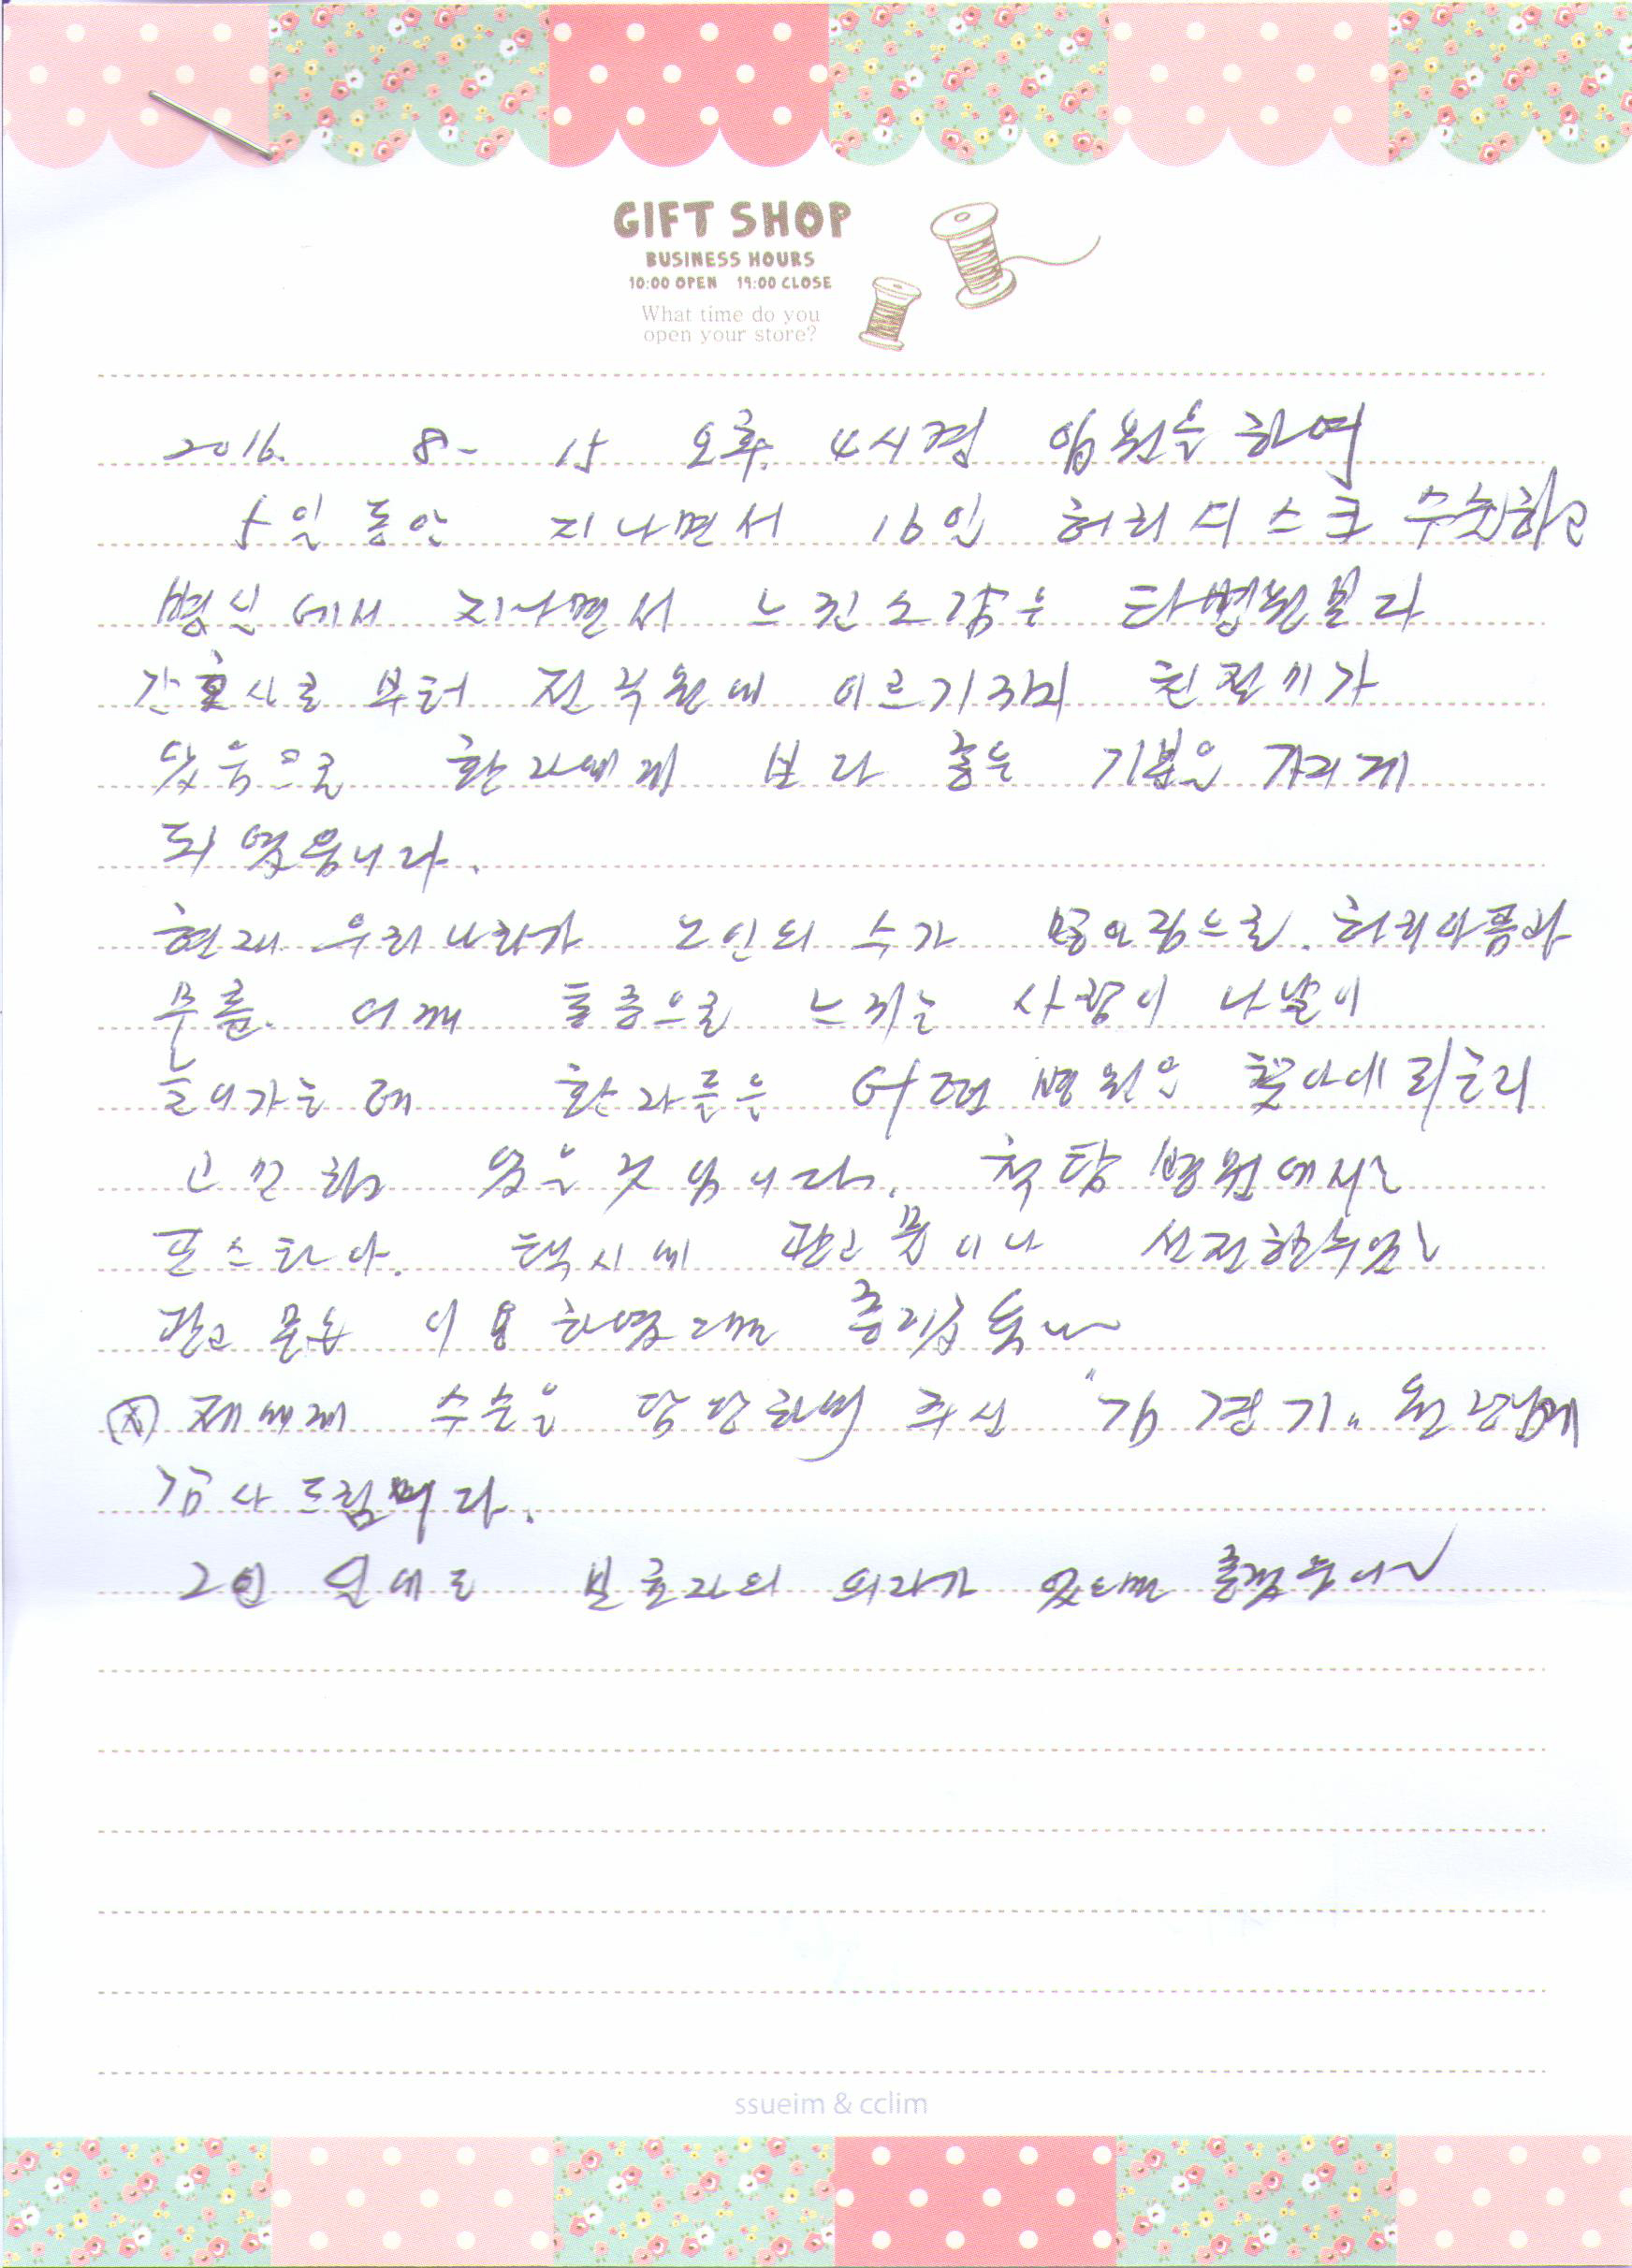 GIFT SHOP
BUSINESS HOURS
10:00 OPEN 19:00 CLOSE
What time do you
open your store?
2016. 8- 15 오후 4시경 입원을 하여
5일 동안 지나면서 16일 허리디스크 수술하고
병실에서 지나면서 느낀소감은 타병원보다
간호사로 부터 전직원에 이르기까지 친절미가
있음으로 환자에게 보다 좋은 기분을 가지게
되였읍니다.
현재 우리나라가 노인의 수가 허리아픔과
무릎. 어깨 통증으로 느끼는 사람이 나날이
늘어가는데 환자들은 어떤 병원을 찾아
고민하고 있을것 입니다. 척탑병원에서는
포스타나. 택시에 광고물이나 선전할수있는
광고물을 이용하였으면
제에게 수술을 담당하여 주신 "김경기" 원장님께
감사드립니다.
2인실에도 보호자의 의자가 있으면
ssueim & cclim